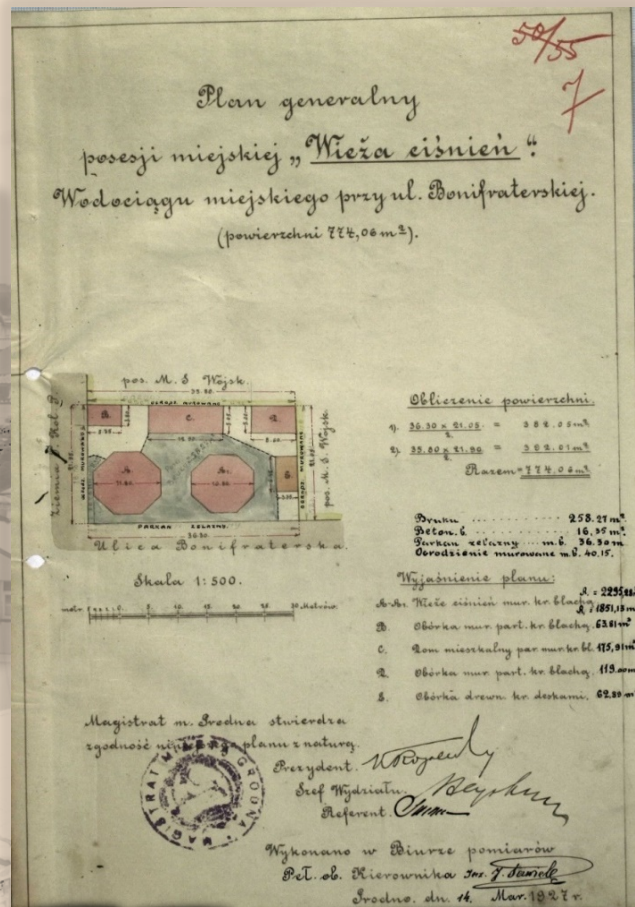 50/55
7
Plan generalny
posesji miejskiej „Wieża ciśnień".
Wodociągu miejskiego przy ul. Bonifraterskiej.
(powierzchni 774,06 m²).
pos. M. S. Wojsk.
35.80
C.
pos. M. S. Wojsk.
Ziemia
PARKAN ŻELAZNY.
36.30
Ulica Bonifraterska.
Skala 1:500.
Metrów.
Obliczenie powierzchni.
1) 36.30 x 21.05 = 382.05 m²
2
2) 35.80 x 21.90 = 392.01 m²
2
Razem = 774.06 m²
Bruku 258.27 m²
Beton. b. 16,35 m²
Parkan żelazny m.b. 36.30 m
Ogrodzienie murowane m.b. 40.15.
Wyjaśnienie planu:
A-A₁. Wieże ciśnień mur. kr. blachą.
B. Obórka mur. part. kr. blachą. 63.61 m³
C. Dom mieszkalny par. mur. kr. bl. 175,91 m³
D. Obórka mur. part. kr. blachą. 119
E. Obórka drewn. kr. deskami. 62.99 m
Magistrat m. Grodna stwierdza
zgodność planu z naturą.
MAGISTRAT MIASTA GRODNA
Prezydent.
Szef Wydziału.
Referent.
Wykonano w Biurze pomiarów
Peł. ob. Kierownika Inż.
Grodno. dn. 14. Mar. 1927 r.